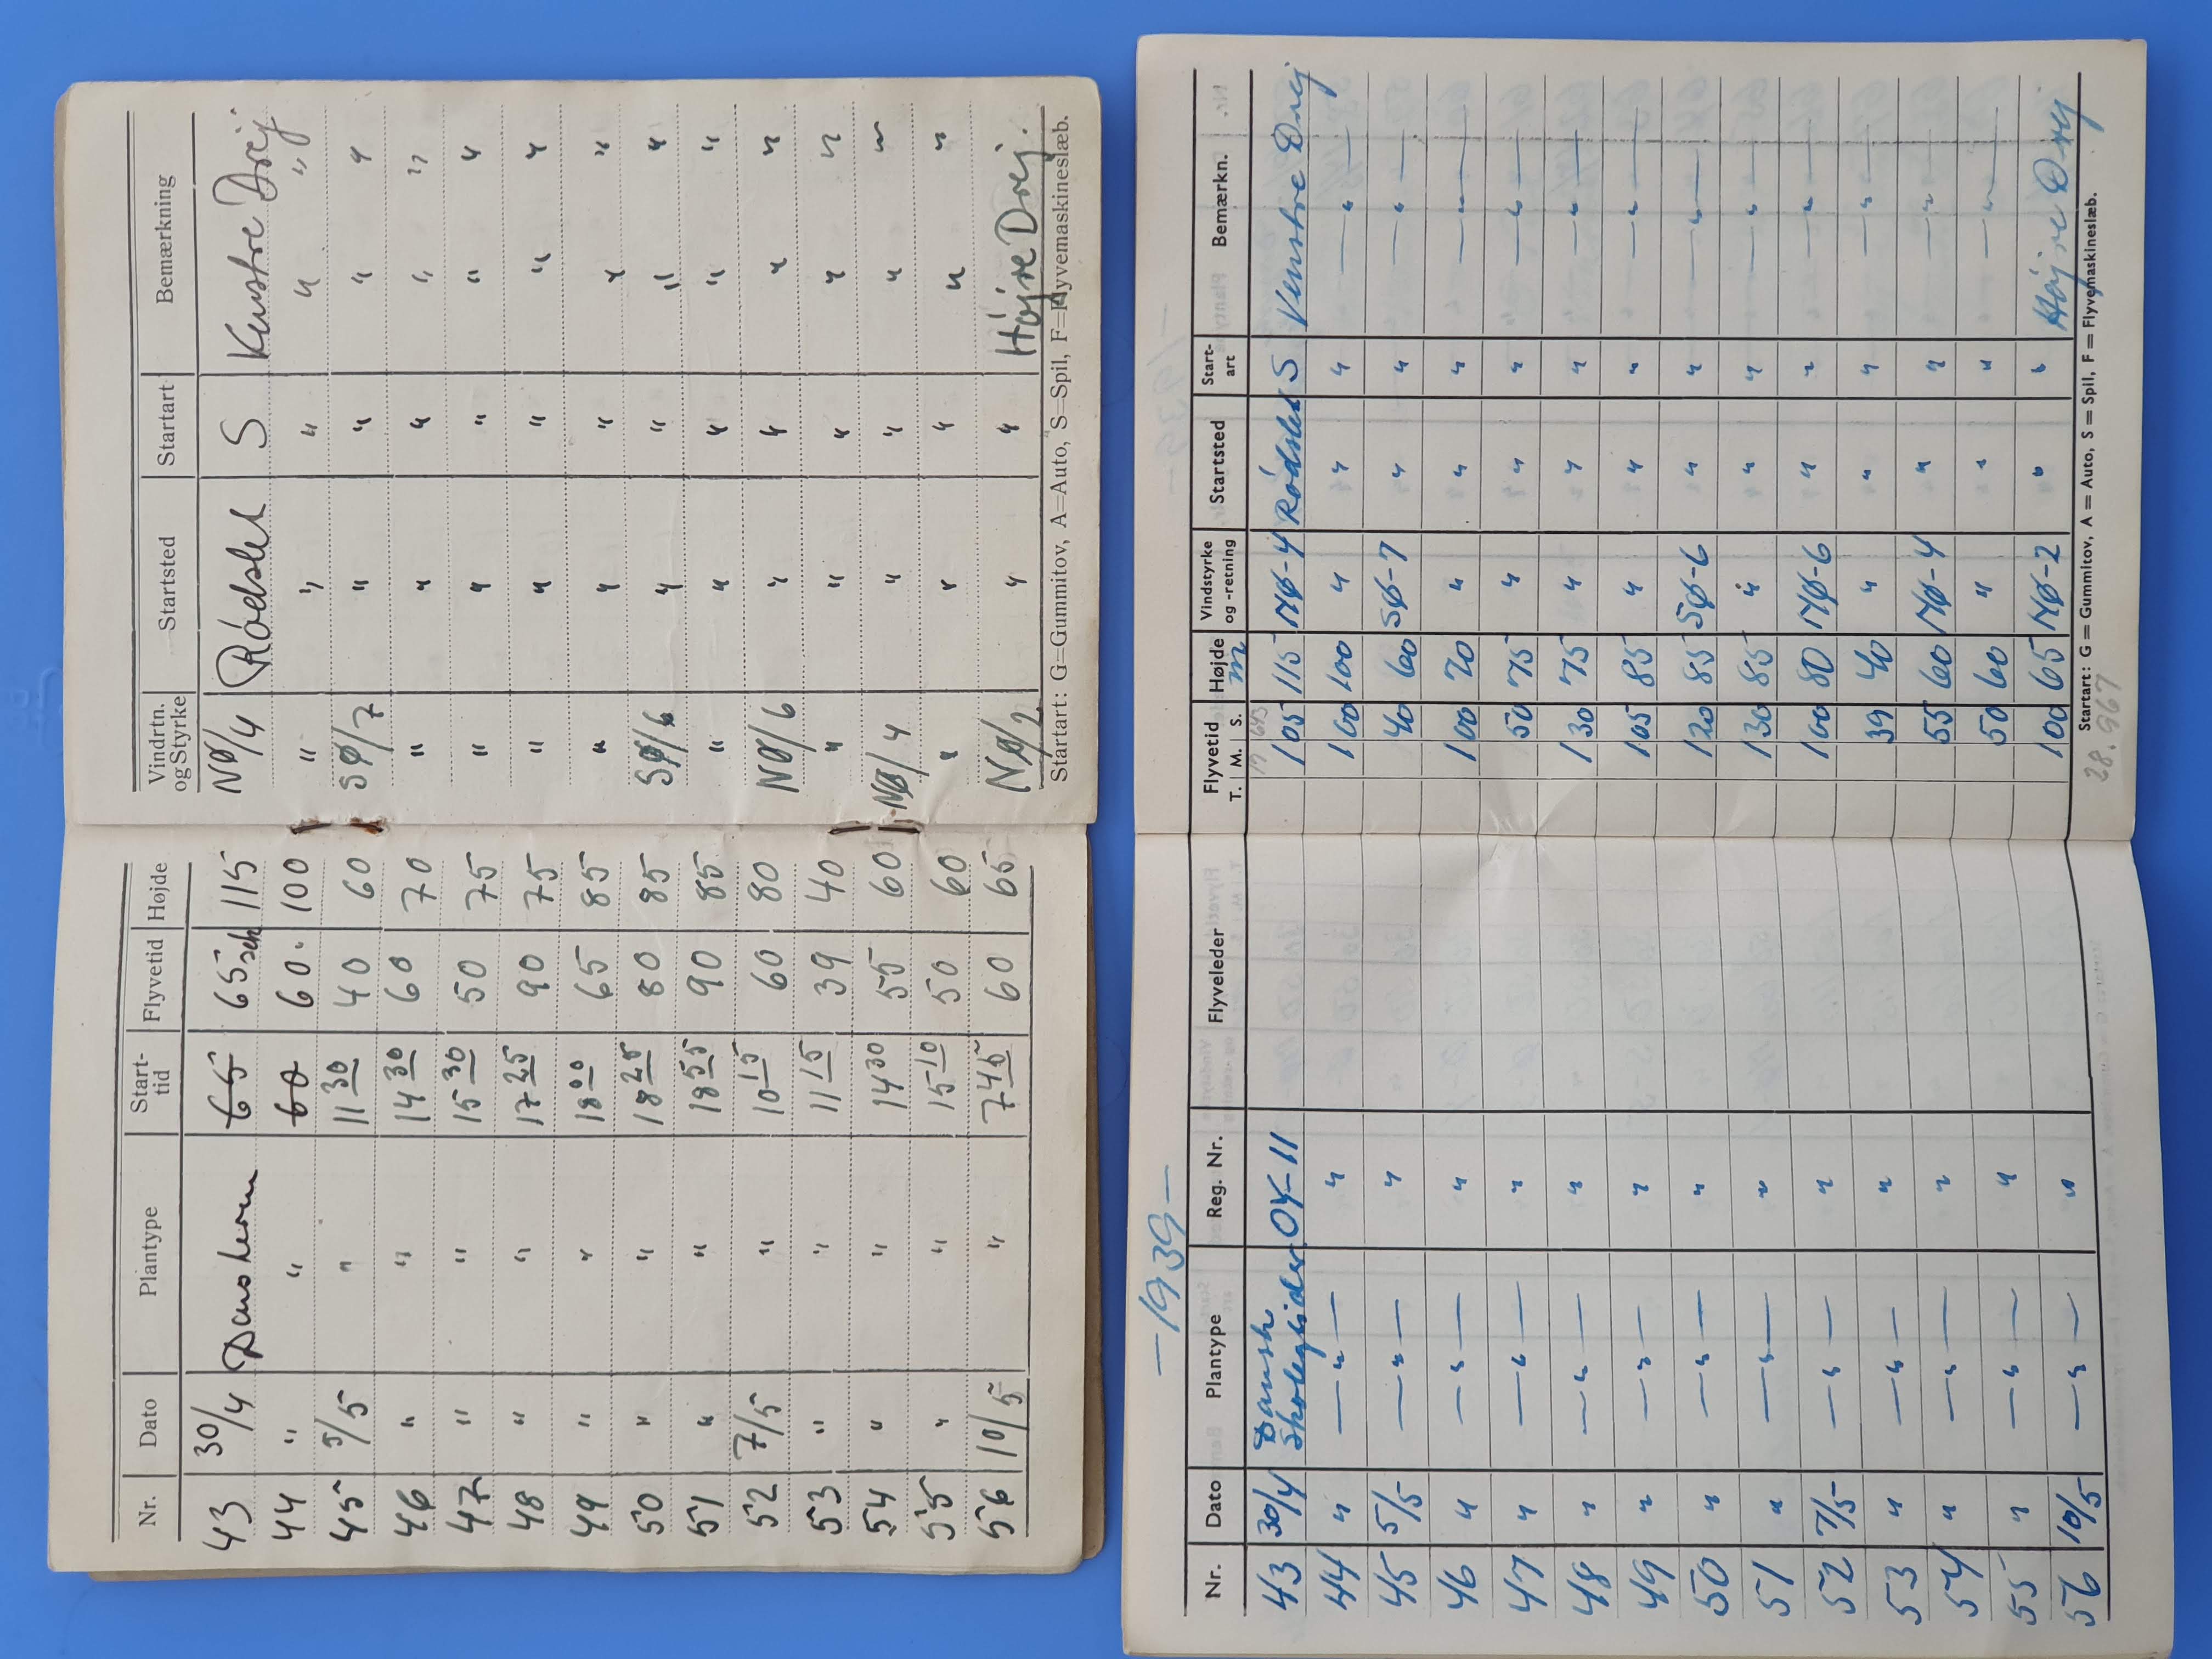 Nr. Dato Plantype Start-tid Flyvetid Højde Vindrtn. og Styrke Startsted Startart Bemærkning
43 30/4 Danskeren 65 65 sek 115 NØ/4 Rødslet S Venstre Drej
44 " " 60 60. 100 " " " " "
45 5/5 " 11 30 40 60 SØ/7 " " " "
46 " " 14 30 60 70 " " " " "
47 " " 15 30 50 75 " " " " "
48 " " 17 25 90 75 " " " " "
49 " " 18 00 65 85 " " " " "
50 " " 18 25 80 85 SØ/6 " " " "
51 " " 18 55 90 85 " " " " "
52 7/5 " 10 15 60 80 NØ/6 " " " "
53 " " 11 15 39 40 " " " " "
54 " " 14 30 55 60 NØ/4 " " " "
55 " " 15 10 50 60 " " " " "
56 10/5 " 7 45 60 65 NØ/2 " " Højre Drej.
Startart: G=Gummitov, A=Auto, S=Spil, F=Flyvemaskineslæb.
—1939—
Nr. Dato Plantype Reg. Nr. Flyveleder Flyvetid T. M. S. Højde m Vindstyrke og -retning Startsted Start-art Bemærkn.
43 30/4 Dansk Skoleglider OY-11 105 115 NØ-4 Rødslet S Venstre Drej
44 " —"— " 100 100 " " " —"—
45 5/5 —"— " 40 60 SØ-7 " " —"—
46 " —"— " 100 70 " " " —"—
47 " —"— " 50 75 " " " —"—
48 " —"— " 130 75 " " " —"—
49 " —"— " 105 85 " " " —"—
50 " —"— " 120 85 SØ-6 " " —"—
51 " —"— " 130 85 " " " —"—
52 7/5 —"— " 100 80 NØ-6 " " —"—
53 " —"— " 39 40 " " " —"—
54 " —"— " 55 60 NØ-4 " " —"—
55 " —"— " 50 60 " " " —"—
56 10/5 —"— " 100 65 NØ-2 " " Højre Drej
Startart: G = Gummitov, A = Auto, S = Spil, F = Flyvemaskineslæb.
28.967